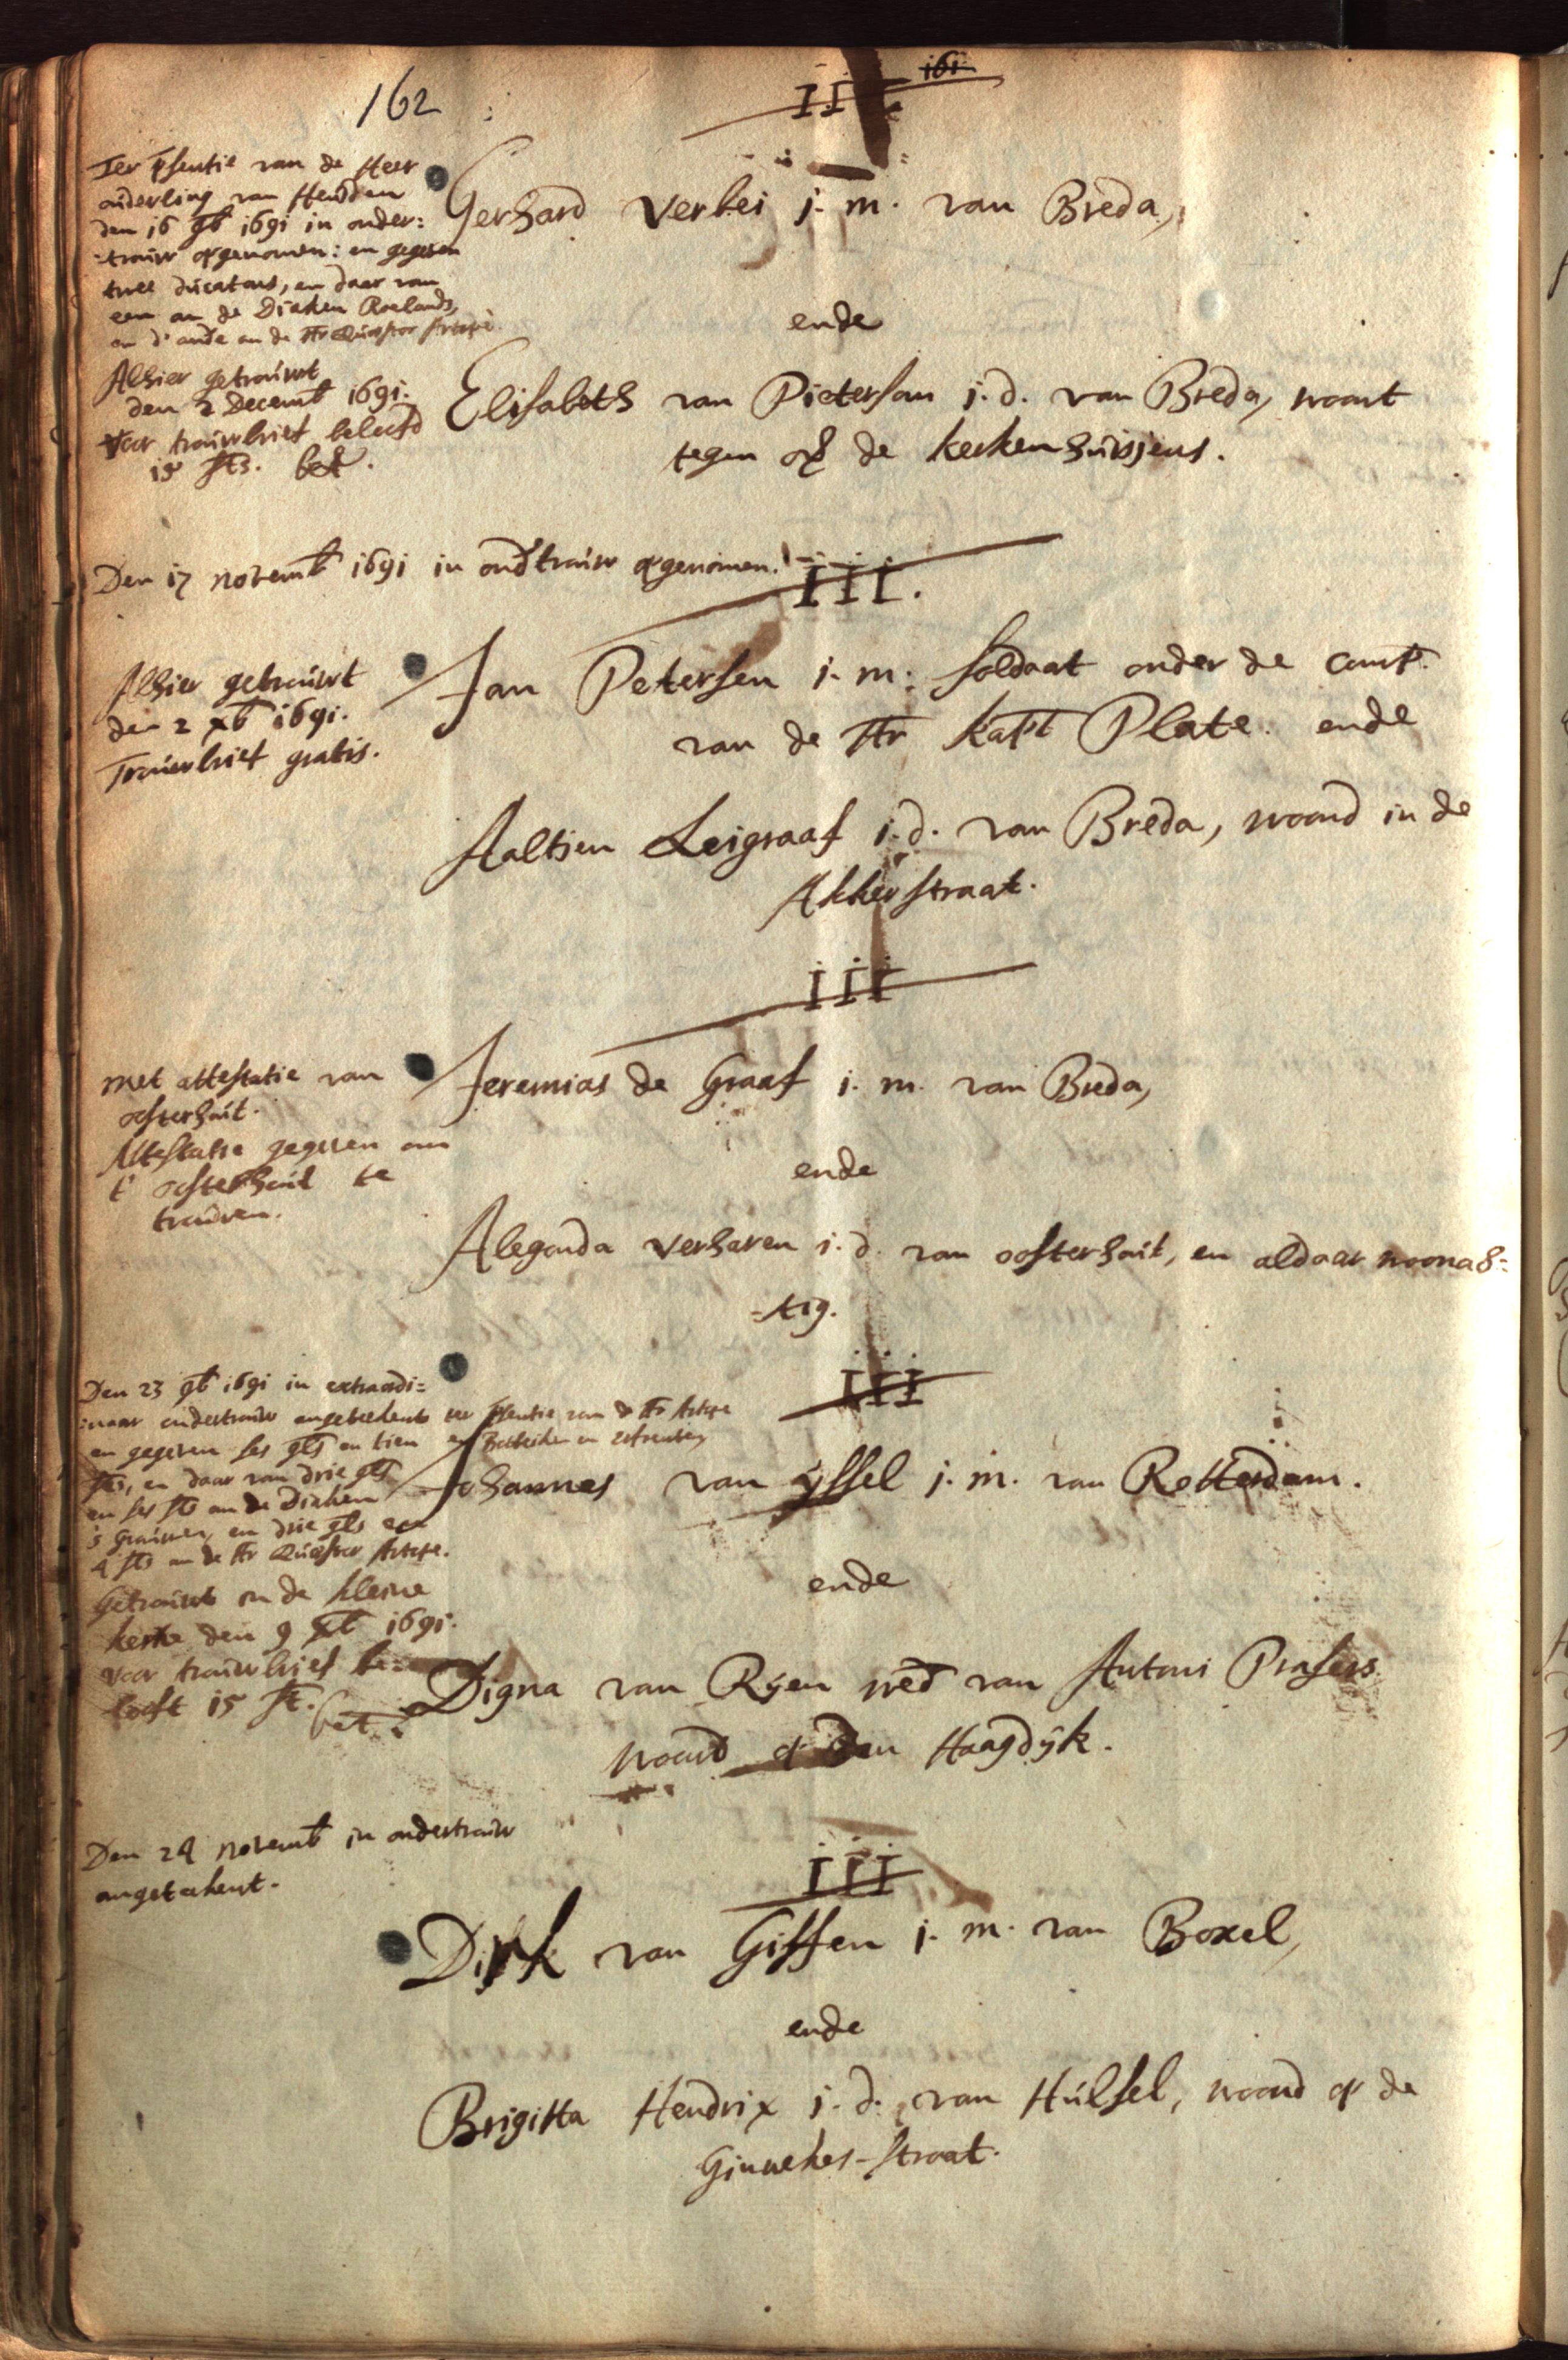 162
161
III
Ter psentie van de Heer
ouderling van Hendden
den 16 9b 1691 in onder:
=trouw opgenomen: en gegeven
twee ducatons, en daer van
een an de Diaken Roelands,
en d' ande an de Hr Quæstor
Gerhard Verbei j. m. van Breda,
ende
Alhier getrouwt
den 2 Decemb 1691.
voor trouwbrief beloofd
15 sts. bet.
Elisabeth van Pietersan j. d. van Breda, woont
tegen op de kerkenhuisjens.
Den 17 novemb 1691 in ondtrouw opgenomen.
III.
Alhier getrouwt
den 2 xb 1691.
Trouwbrief gratis.
Jan Petersen j. m. soldaat onder de comp.
van de Hr kapt Plate. ende
Aaltjen Leigraaf j. d. van Breda, woond in de
Akkerstraat.
III
met attestatie van
osterhout.
Attestatie gegeven om
t' osterhout te
trouwen.
Jeremias de Graaf j. m. van Breda,
ende
Alegonda Verharen j. d. van oosterhout, en aldaar woonag=
=tig.
III
Den 23 9b 1691 in extraordi=
=naar ondertrouw angetekent ter psentie van de Hr
en gegeven ses gls en tien
sts, en daar van drie gls
en ses sts an de Diaken
's Grauwen, en drie gls en
4 sts an de Hr Quæstor
Johannes van ÿssel j. m. van Rotterdam.
ende
Getrouwt in de kleine
kerke den 9 xb 1691.
voor trouwbrief be=
looft 15 st. bet.
Digna van Rÿen wed van Antoni Prasers.
woond op den Haagdÿk.
Den 24 novemb in ondertrouw
angetekent.
III
Dirk van Giffen j. m. van Boxel,
ende
Brigitta Hendrix j. d. van Hulsel, woond op de
Ginneker-straat.